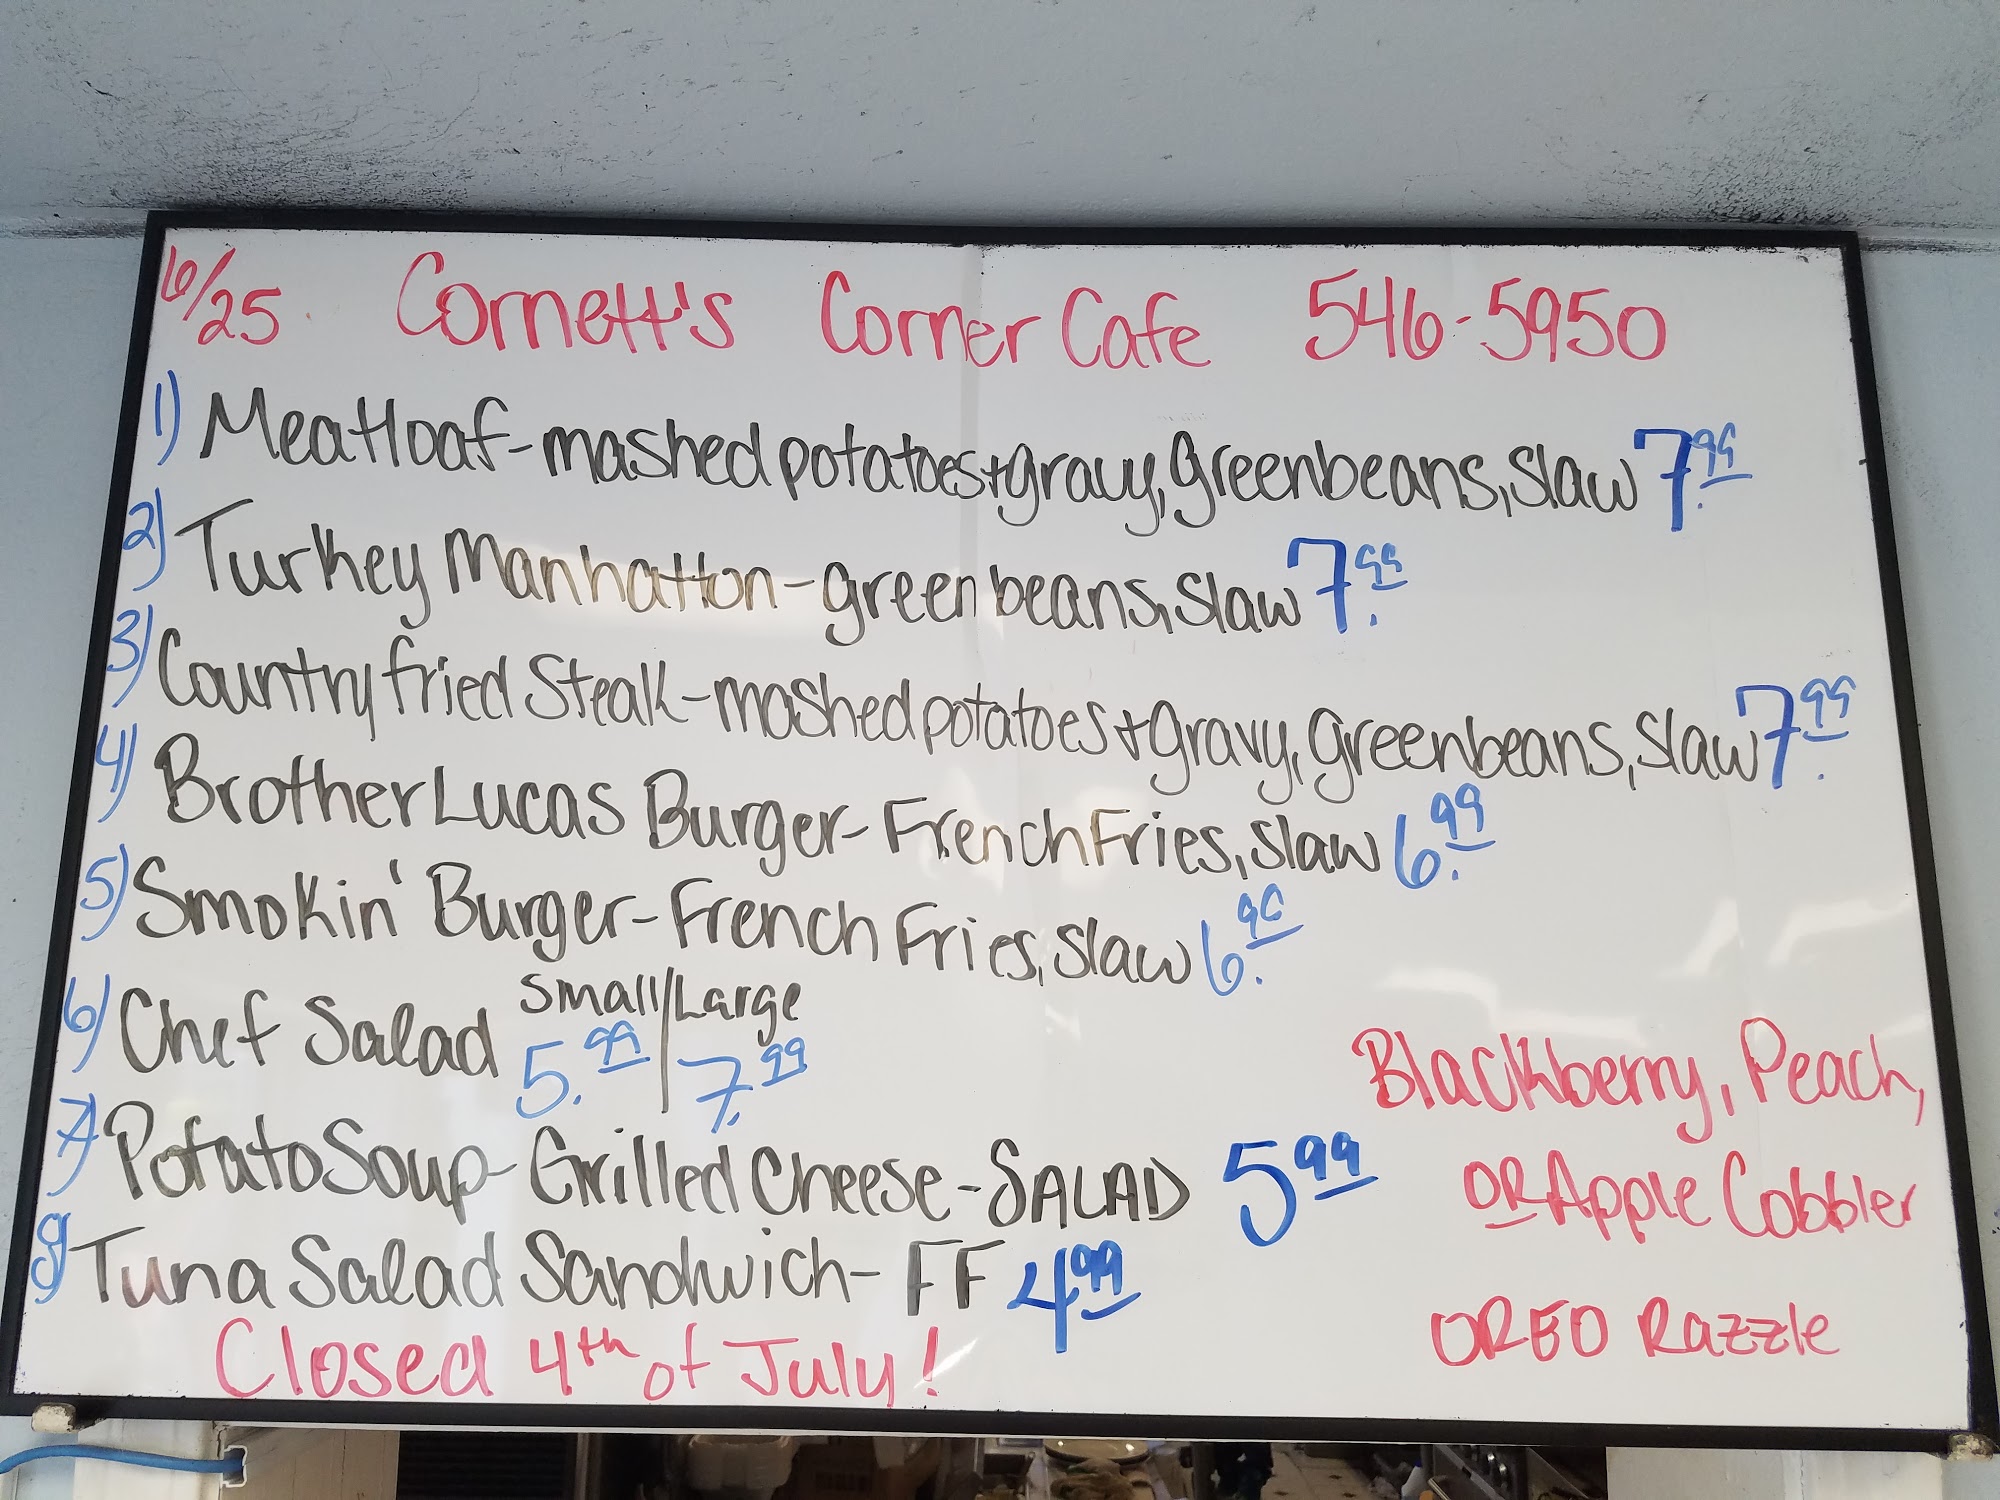 6/25 Cornett's Corner Cafe 546-5950
1) Meatloaf-mashed potatoes+gravy, greenbeans, slaw 7.99
2) Turkey Manhatton-green beans, slaw 7.99
3) Country fried Steak-mashed potatoes+gravy, greenbeans, slaw 7.99
4) Brother Lucas Burger-French Fries, slaw 6.99
5) Smokin' Burger-French Fries, slaw 6.99
6) Chef Salad Small/Large
5.99/7.99
7) Potato Soup-Grilled Cheese-SALAD 5.99
8) Tuna Salad Sandwich-FF 4.99
Closed 4th of July!
Blackberry, Peach,
OR Apple Cobbler
OREO Razzle